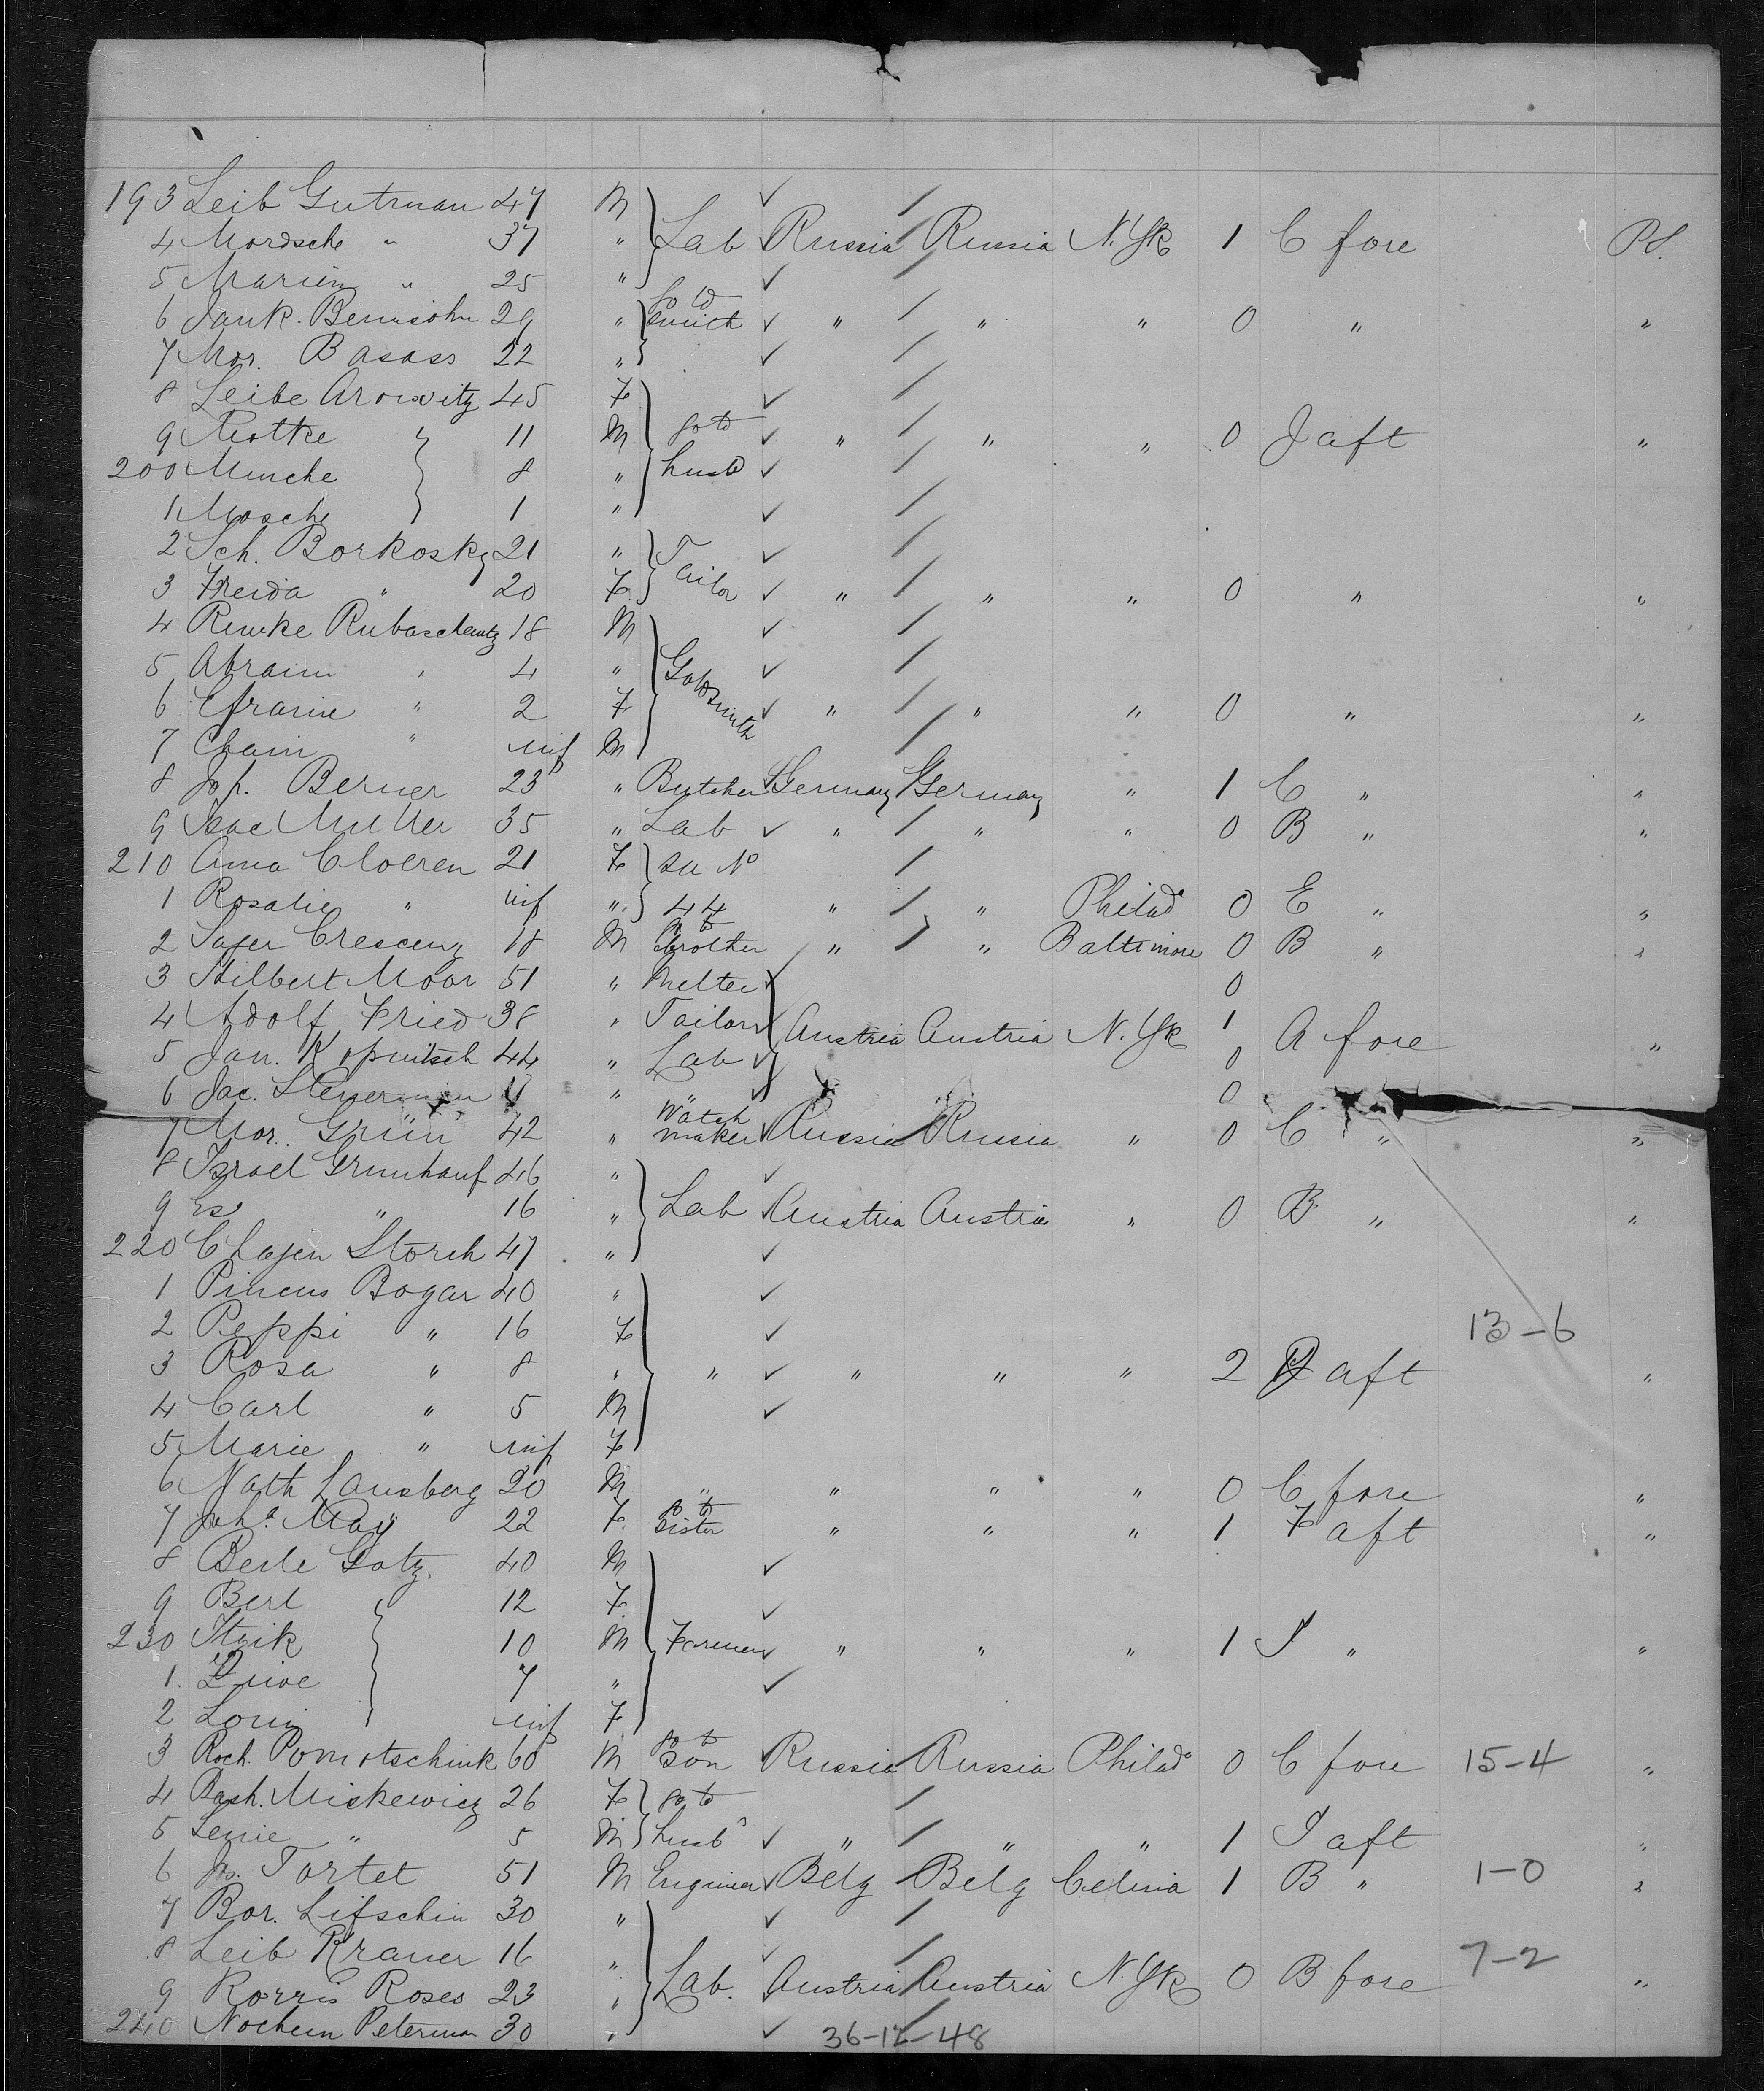 193 Leib Gutman 47 M
4 Mordsche " 37 " Lab Russia Russia N.Yk 1 C fore P.S.
5 " 25 "
6 Jank. Bennsohn 29 " Gold smith " " " 0 " "
7 Mor. Basass 22 "
8 Leibe Arowitz 45 F
9 Motke 11 M go to " " " 0 J aft "
200 Minche 8 " husb
1 Mosche 1 "
2 Sch. Borkosky 21 " Tailor
3 Freida " 20 F " " " 0 " "
4 18 M
5 Abraim " 4 " Goldsmith
6 Efraim " 2 F " " " 0 " "
7 Chaim " inf M
8 Jos. Berner 23 " Butcher Germany Germany " 1 C " "
9 Isac Muller 35 " Lab " " " 0 B " "
210 Anna Cloeren 21 F su No
1 Rosalie " inf " 44 " " Philad 0 E " "
2 Crescenz 18 M Go to Brother " " Baltimore 0 B " "
3 Hilbert Moor 51 " Melter 0
4 Adolf Fried 38 " Tailor Austria Austria N.Yk 1 A fore "
5 Jan. 44 " Lab 0
6 Jac. " " 0
7 Mor. Grün 42 " Watch maker Russia Russia " 0 C " "
8 Israel 46 "
9 " 16 " Lab Austria Austria " 0 B " "
220 Chajen Storch 47 "
1 Pincus Bogar 40 "
2 Peppi " 16 F 13-6
3 Rosa " 8 " " " " " 2 aft "
4 Carl " 5 M
5 Marie " inf F
6 Nath Lansberg 20 M " " " " 0 C fore "
7 Joha. May 22 F. go to Sister " " " 1 F aft "
8 Berle Gotz. 40 M
9 Berl 12 F.
230 Itzik 10 M Farmer " " " 1 J " "
1. 7 "
2 inf F
3 Roch. Pomotschink 60 M go to Son Russia Russia Philad 0 C fore 15-4 "
4 Bash. Miskewicz 26 F go to
5 " 5 M husb " " " 1 J aft "
6 Jos. Tortet 51 M Engineer Belg Belg Celina 1 B " 1-0 "
7 Bor. Lifschin 30 "
8 Leib Kraner 16 " 7-2
9 Roses 23 " Lab. Austria Austria N.Yk 0 B fore "
240 Nochem Peterman 30 "
36-12-48